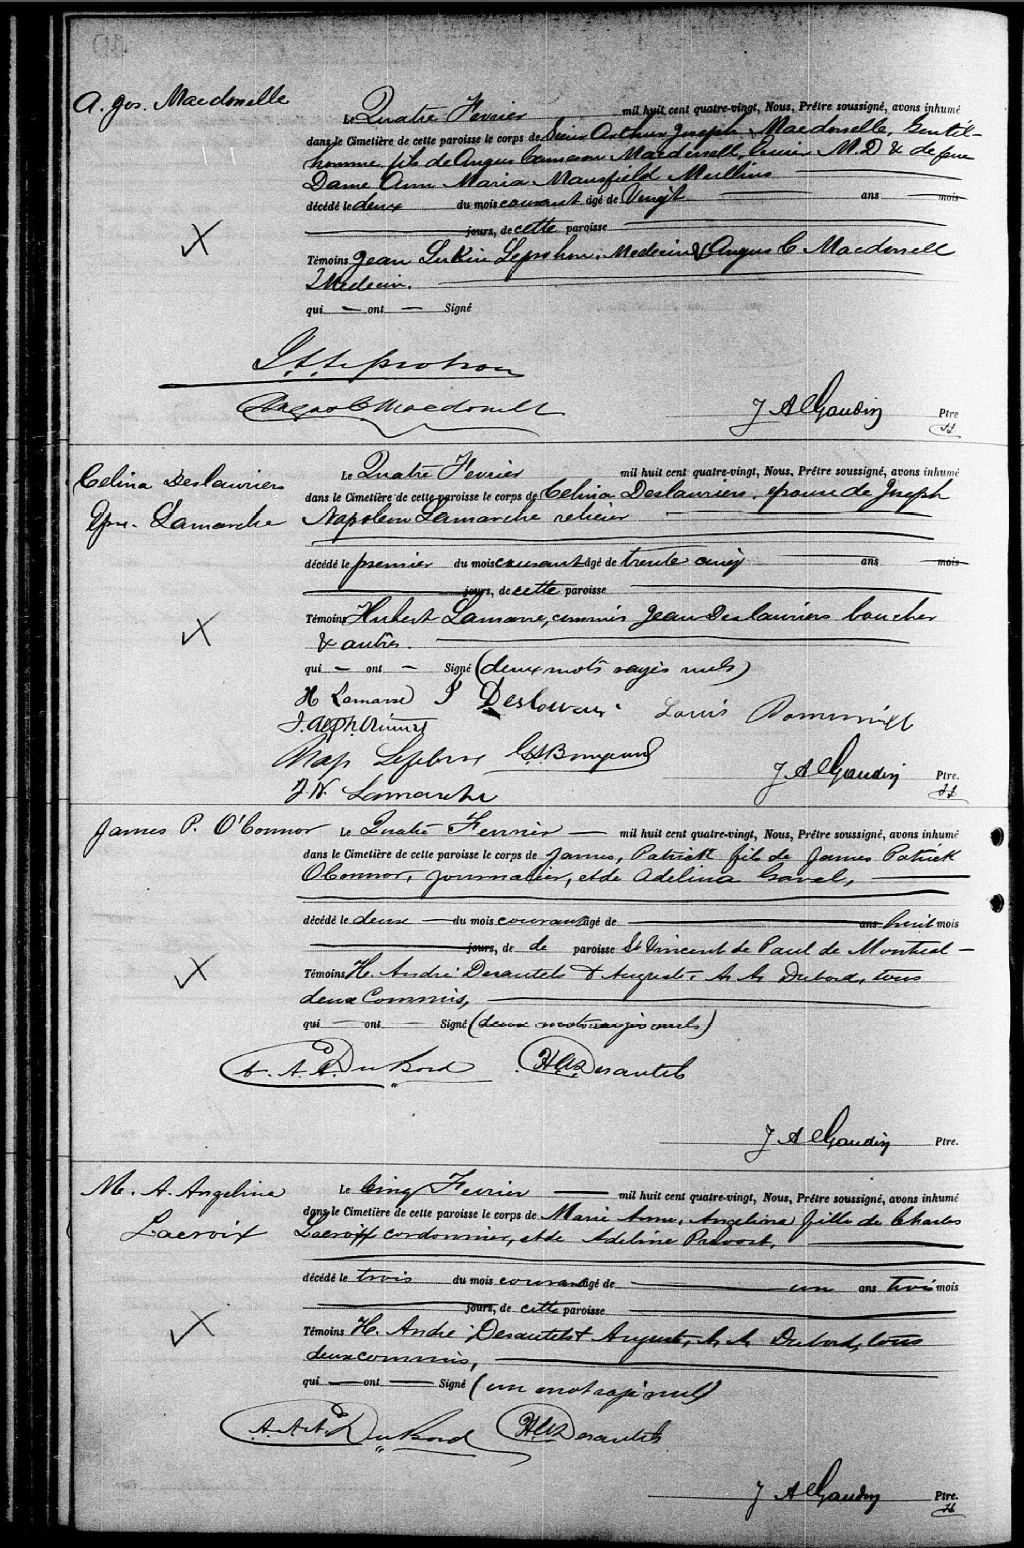 A. Jos. Macdonelle
Le Quatre Fevrier mil huit cent quatre-vingt, Nous, Prêtre soussigné, avons inhumé
dans le Cimetière de cette paroisse le corps de Sieur Arthur Joseph Macdonelle, Gentil-
homme fils de Angus Cameron Macdonell, Ecuier M.D & de feue
Dame Ann Maria Mansfield Mullins
décédé le deux du mois courant âgé de Vingt ans mois
jours, de cette paroisse
Témoins Jean Lukin Leprohon, Medecin & Angus C Macdonell
Medecin.
qui ont Signé
J. L. Leprohon
Angus C Macdonell
J A Gaudin Ptre
Celina Deslauriers
Epse. Lamarche
Le Quatre Fevrier mil huit cent quatre-vingt, Nous, Prêtre soussigné, avons inhumé
dans le Cimetière de cette paroisse le corps de Celina Deslauriers, epouse de Joseph
Napoleon Lamarche relieur
décédé le premier du mois courant âgé de trente cinq ans mois
jours, de cette paroisse
Témoins Hubert Lamarre, commis Jean Deslauriers boucher
& autres.
qui ont Signé (deux mots rayés nuls)
H Lamarre J Deslauriers Louis
Nap Lefebvre
J A Gaudin Ptre.
J. N. Lamarche
James P. O'Connor
Le Quatre Fevrier mil huit cent quatre-vingt, Nous, Prêtre soussigné, avons inhumé
dans le Cimetière de cette paroisse le corps de James, Patrick fils de James Patrick
OConnor, journalier, et de Adelina Gravel,
décédé le deux du mois courant âgé de ans huit mois
jours, de de paroisse St Vincent de Paul de Montreal
Témoins H. André Desautels & Auguste A. A. Dubord, tous
deux Commis,
qui ont Signé (deux mots rayés nuls)
A. A. A. DuBord H A Desautels
J A Gaudin Ptre.
M. A. Angelina
Lacroix
Le Cinq Fevrier mil huit cent quatre-vingt, Nous, Prêtre soussigné, avons inhumé
dans le Cimetière de cette paroisse le corps de Marie Anne, Angelina fille de Charles
Lacroix cordonnier, et de Adeline Prevost,
décédé le trois du mois courant âgé de un ans trois mois
jours, de cette paroisse
Témoins H. André Desautels & Auguste, A. A. Dubord, tous
deux commis,
qui ont Signé (un mot rayé nul)
A. A. A. DuBord H A Desautels
J A Gaudin Ptre.